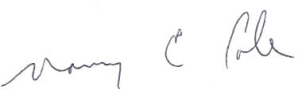 Nancy C Cole